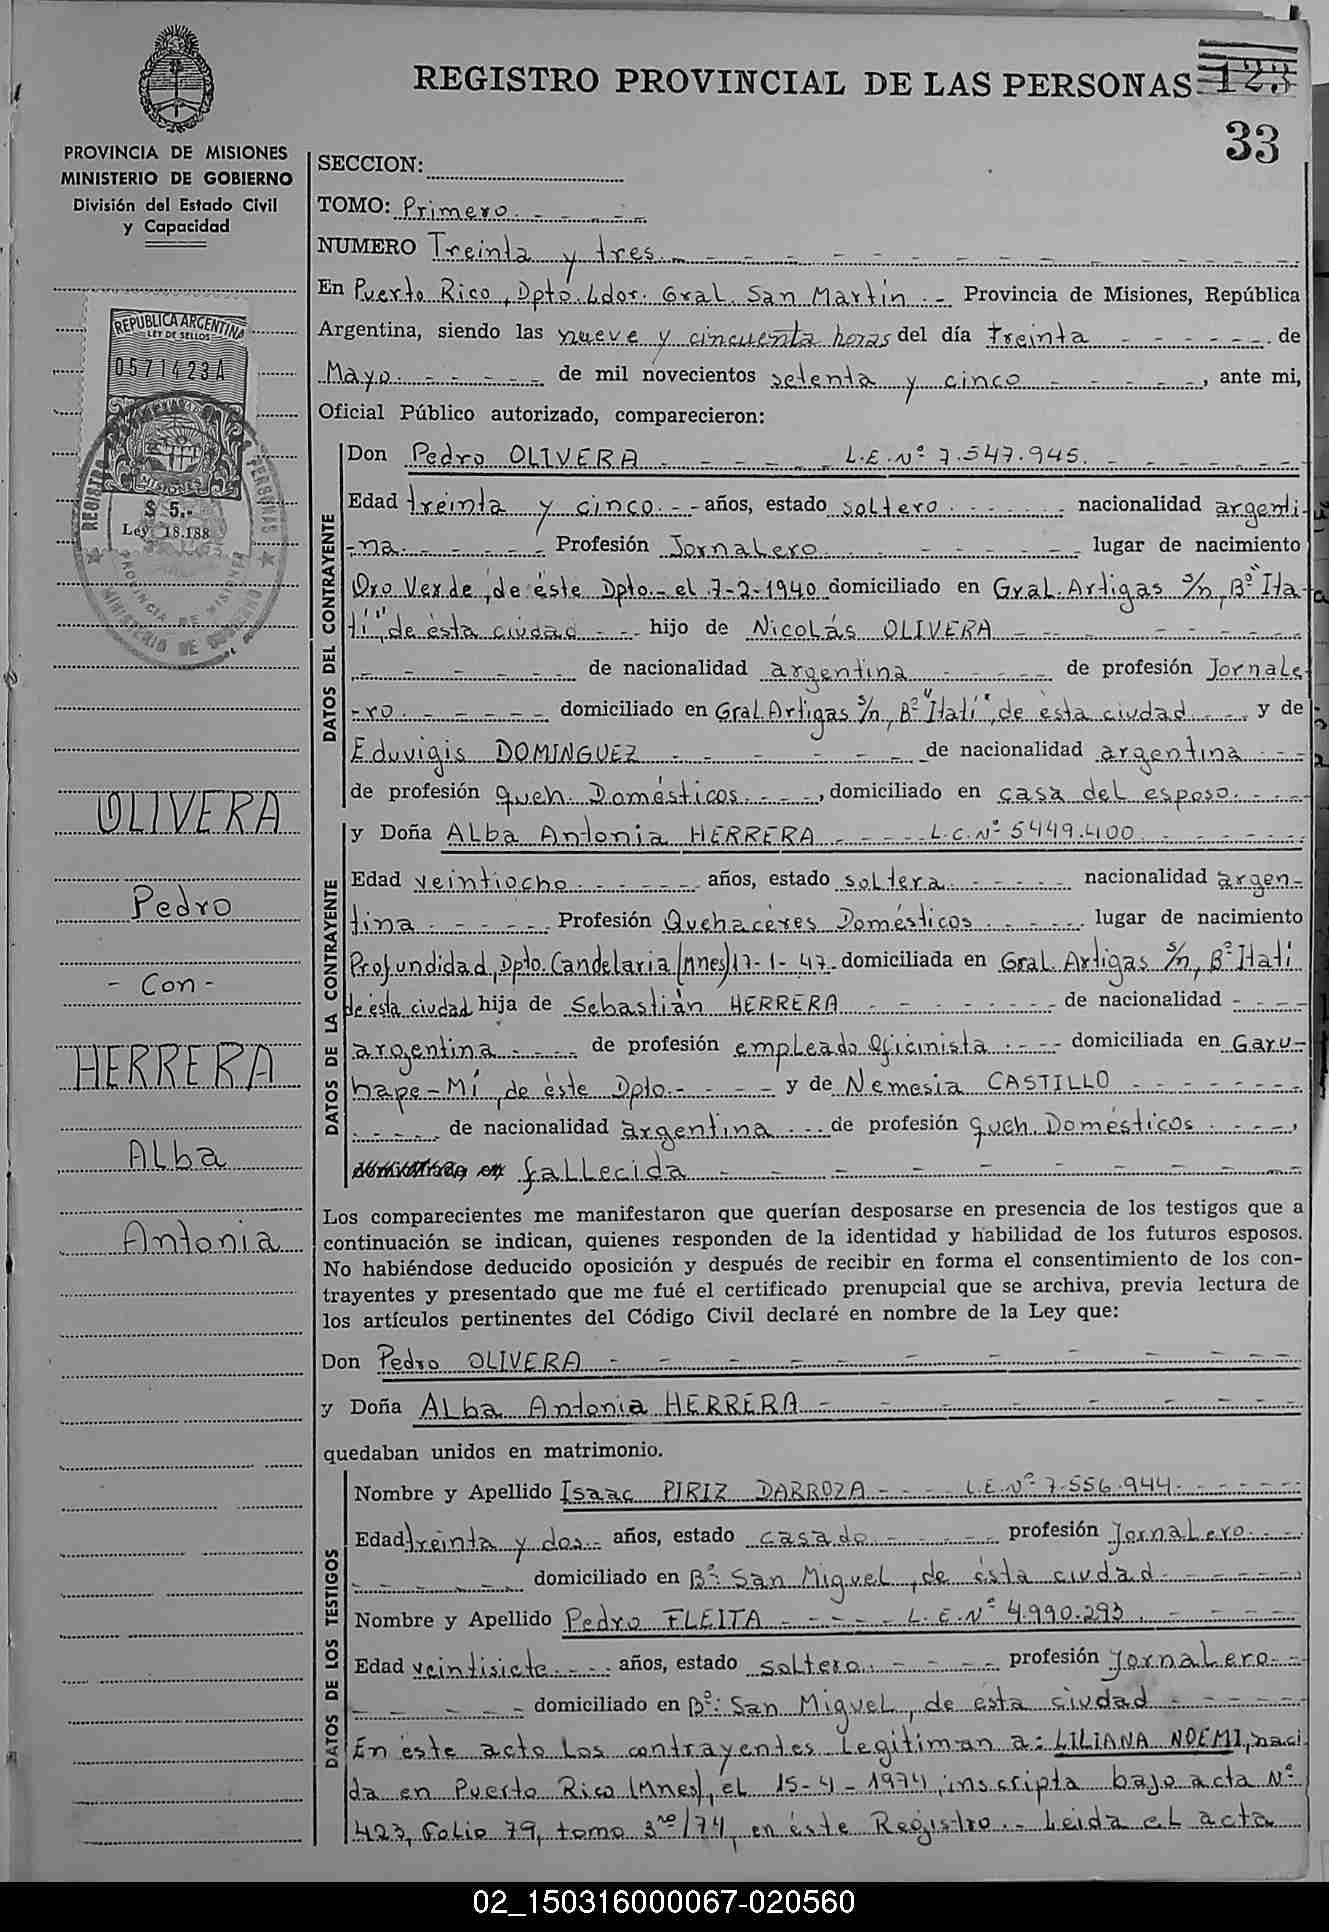 REGISTRO PROVINCIAL DE LAS PERSONAS 123
33
PROVINCIA DE MISIONES
MINISTERIO DE GOBIERNO
División del Estado Civil
y Capacidad
REPUBLICA ARGENTINA
LEY DE SELLOS
0571423A
MISIONES
$ 5.-
Ley 18.188
REGISTRO PERSONAS
PROVINCIA DE MISIONES
MINISTERIO DE GOBIERNO
OLIVERA
Pedro
- Con -
HERRERA
Alba
Antonia
SECCION:
TOMO: Primero. - - - -
NUMERO Treinta y tres. - - - - - - - -
En Puerto Rico, Dpto. Ldor. Gral. San Martín. - Provincia de Misiones, República
Argentina, siendo las nueve y cincuenta horas del día treinta - - - - - de
Mayo. - - - - - de mil novecientos setenta y cinco - - - - -, ante mi,
Oficial Público autorizado, comparecieron:
DATOS DEL CONTRAYENTE
Don Pedro OLIVERA - - - - - L.E.Nº 7.547.945. - - - - -
Edad treinta y cinco. - - años, estado soltero. - - - - - nacionalidad argenti-
-na. - - - - - Profesión Jornalero. - - - - - - lugar de nacimiento
Oro Verde, de éste Dpto. - el 7-2-1940 domiciliado en Gral. Artigas s/n, Bº "Ita-
tí", de ésta ciudad - - - hijo de Nicolás OLIVERA - - - - - - -
- - - - - - de nacionalidad argentina - - - - - de profesión Jornale-
-ro. - - - - - domiciliado en Gral. Artigas s/n, Bº "Itatí", de ésta ciudad - - - y de
Eduvigis DOMINGUEZ - - - - - - de nacionalidad argentina - - -
de profesión queh. Domésticos. - - -, domiciliado en casa del esposo. - - -
DATOS DE LA CONTRAYENTE
y Doña Alba Antonia HERRERA - - - - L.C.Nº 5449.400 - - - - -
Edad veintiocho. - - - - - años, estado soltera. - - - - nacionalidad argen-
tina - - - - - Profesión Quehaceres Domésticos. - - - - lugar de nacimiento
Profundidad, Dpto. Candelaria (Mnes) 17-1-47. domiciliada en Gral. Artigas s/n, Bº Itatí
de ésta ciudad hija de Sebastián HERRERA - - - - - - de nacionalidad - - - -
argentina - - - - de profesión empleado Oficinista - - - domiciliada en Garu-
hape-Mí, de éste Dpto. - - - - - y de Nemesia CASTILLO - - - - - -
- - - - - de nacionalidad argentina - - - de profesión queh. Domésticos - - - -,
domiciliada en fallecida - - - - - - - - -
Los comparecientes me manifestaron que querían desposarse en presencia de los testigos que a
continuación se indican, quienes responden de la identidad y habilidad de los futuros esposos.
No habiéndose deducido oposición y después de recibir en forma el consentimiento de los con-
trayentes y presentado que me fué el certificado prenupcial que se archiva, previa lectura de
los artículos pertinentes del Código Civil declaré en nombre de la Ley que:
Don Pedro OLIVERA - - - - - - - - -
y Doña Alba Antonia HERRERA - - - - - - -
quedaban unidos en matrimonio.
DATOS DE LOS TESTIGOS
Nombre y Apellido Isaac PIRIZ DARROZA - - - - L.E.Nº 7.556.944. - - - - -
Edad treinta y dos. - años, estado casado - - - - - profesión Jornalero. - -
- - - - - - domiciliado en Bº: San Miguel, de ésta ciudad - - - - -
Nombre y Apellido Pedro FLEITA - - - - - L.E.Nº 4.990.293. - - - -
Edad veintisiete. - - - años, estado soltero. - - - - profesión Jornalero. - -
- - - - - - domiciliado en Bº: San Miguel, de ésta ciudad - - - - -
En éste acto los contrayentes legitiman a: LILIANA NOEMI, naci-
da en Puerto Rico (Mnes), el 15-4-1974, inscripta bajo acta Nº
423, Folio 79, tomo 3ro/74, en éste Registro. - Leida el acta
02_150316000067-020560